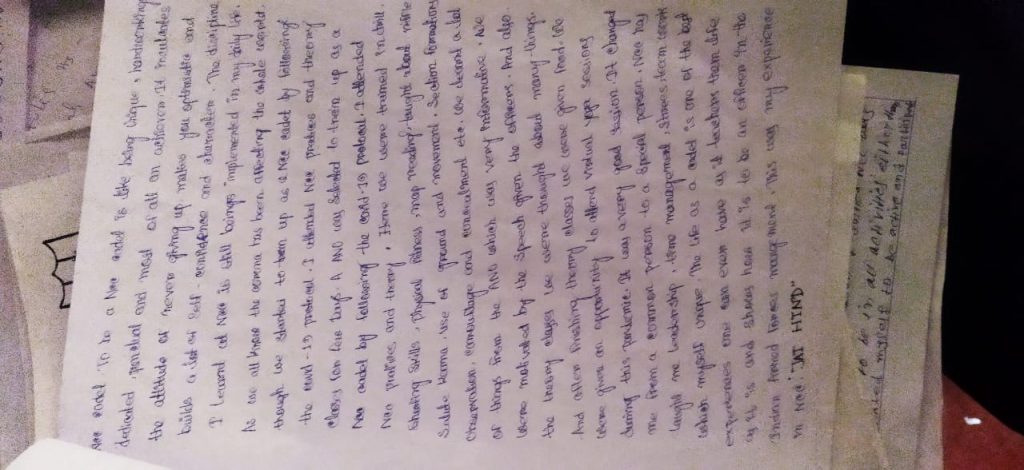 Ncc cadet. To be a Ncc cadet is like being unique, hardworking
dedicated, punctual and most of all an
the attitude of never giving up makes you optimistic and
builds a lot of self-confidence and character. The discipline
I learned at Ncc is still beings implemented in my daily life.
As we all know the corona has been affecting the whole world.
though we started to turn up as a Ncc cadet by following
the covid-19 protocol. I attended Ncc practices and theory
class for few days. A was selected to turn up as a
Ncc cadet by following the covid 19 protocol. I attended
Ncc practices and theory. Here we were trained in drill.
Shooting skills, Physical fitness, map reading, taught about rifle
Salute Karna, use of ground and movement, Section formation
Observation, camouflage and concealment etc. We learnt a lot
of things from the ANO which was very informative. We
were motivated by the Speech given the officers. And also
the theory classes we were thought about many things.
And after finishing theory classes we were given food. We
were given an opportunity to attend virtual yoga sessions
during this pandemic. It was a very good session It changed
me from a common person to a special person. Ncc has
taught me leadership, time management, Stress, team work
which myself unique. The life as a cadet is one of the best
experiences one can ever have as it teaches them life
as it is and shows how it is to be an officer in the
Indian Armed Forces. This was my experience
in Ncc. "JAI HIND"
to do is in all activities either they
myself to be active and